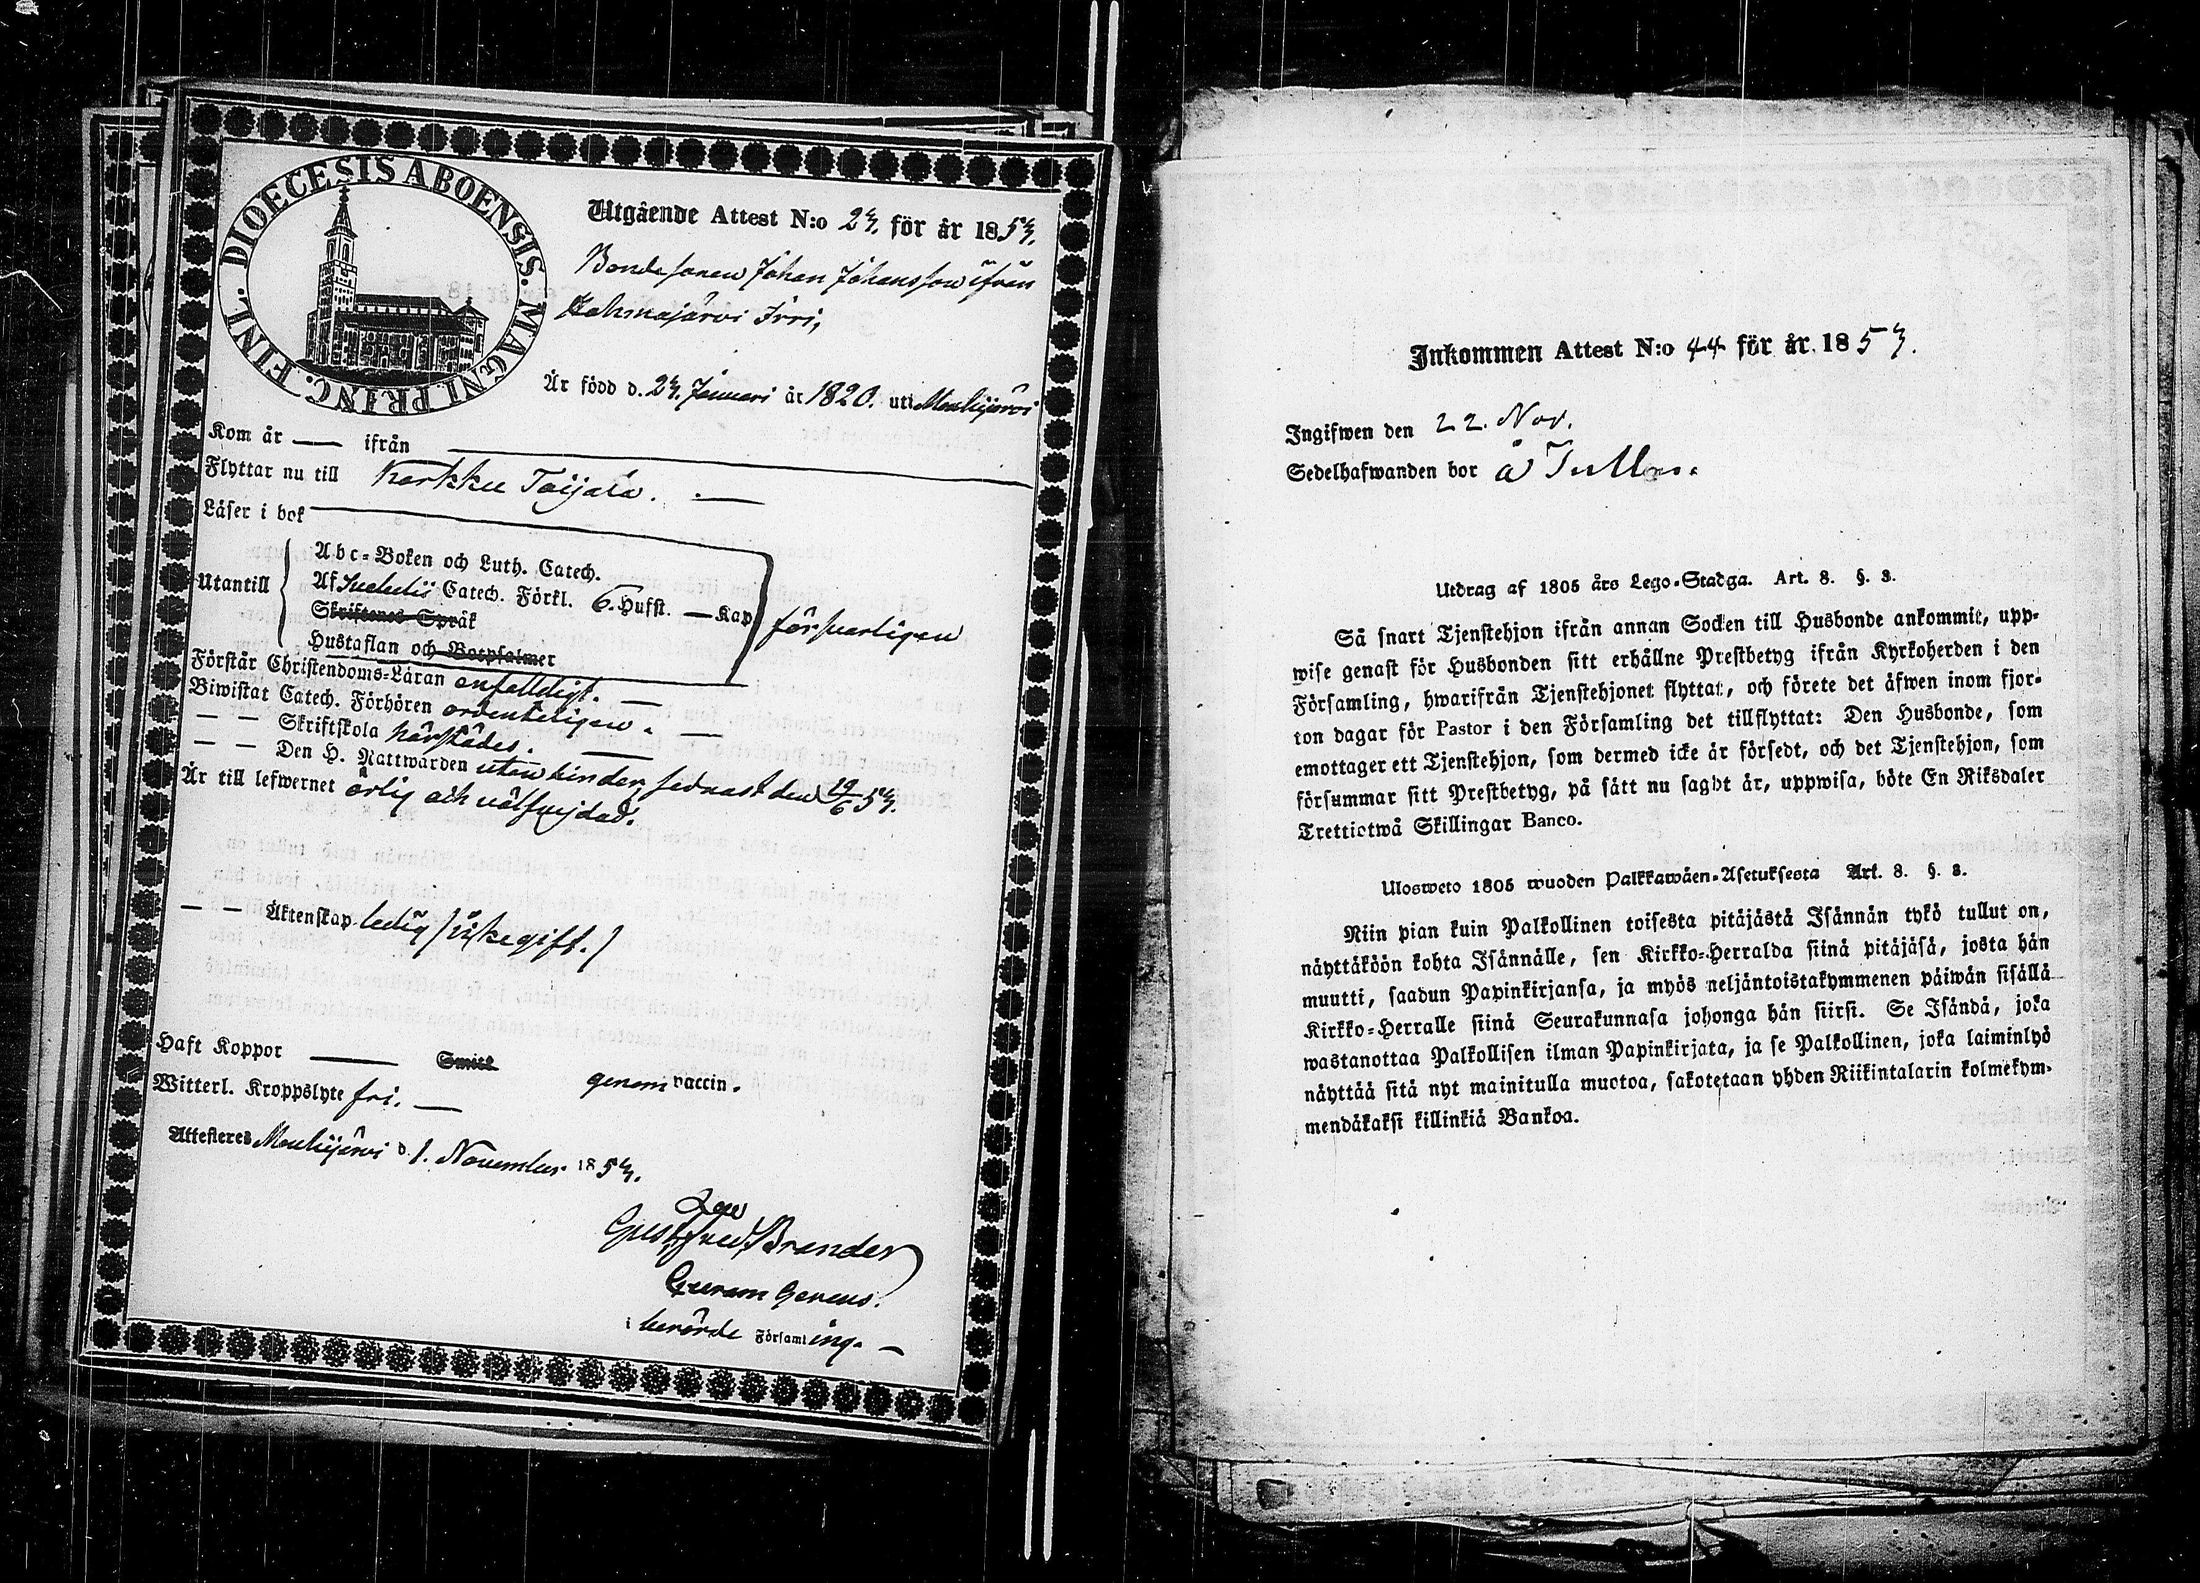 DIOECESIS ABOENSIS. MAGNI. PRINC. FINL.
Utgående Attest N:o 27. för år 1857.
Bondesonen Johan Johansson ifrån
Hahmajärvi Irri,
Är född d. 27. Januari år 1820. uti Mouhijärvi
Kom år — ifrån —
Flyttar nu till Karkku Toijala. —
Läser i bok
Utantill
Abc-Boken och Luth. Catech.
Af Svebelii Catech. Förkl. 6. Hufst. — Kap
Skriftenes Språk
Hustaflan och Botpsalmer
försvarligen
Förstår Christendoms-Läran enfalldigt. —
Biwistat Catech. Förhören ordenteligen. —
— — Skriftskola härstädes. —
— — Den H. Nattwarden utan hinder, sednast den 29/6 57.
Är till lefwernet ärlig och välfrejdad.
— — Äktenskap ledig (äske gift.)
Haft Koppor — Smitt genom vaccin.
Witterl. Kroppslyte fri. —
Attesteres Mouhijärvi d. 1. November 1857.
Gust. Fred. Brander
i berörde Församling. —
Inkommen Attest N:o 44 för år 1857.
Ingifwen den 22. Nov.
Sedelhafwanden bor å Tulla.
Utdrag af 1805 års Lego-Stadga. Art. 8. §. 3.
Så snart Tjenstehjon ifrån annan Socken till Husbonde ankommit, upp-
wise genast för Husbonden sitt erhållne Prestbetyg ifrån Kyrkoherden i den
Församling, hwarifrån Tjenstehjonet flyttat, och förete det äfwen inom fjor-
ton dagar för Pastor i den Församling det tillflyttat: Den Husbonde, som
emottager ett Tjenstehjon, som dermed icke är försedt, och det Tjenstehjon, som
försummar sitt Prestbetyg, på sätt nu sagdt är, uppwisa, böte En Riksdaler
Trettiotwå Skillingar Banco.
Ulosweto 1805 wuoden Palkkawäen-Asetuksesta Art. 8. §. 3.
Niin pian kuin Palkollinen toisesta pitäjästä Isännän tykö tullut on,
näyttäköön kohta Isännälle, sen Kirkko-Herralda siinä pitäjäsä, josta hän
muutti, saadun Papinkirjansa, ja myös neljäntoistakymmenen päiwän sisällä
Kirkko-Herralle siinä Seurakunnasa johonga hän siirsi. Se Isändä, joka
wastanottaa Palkollisen ilman Papinkirjata, ja se Palkollinen, joka laiminlyö
näyttää sitä nyt mainitulla muotoa, sakotetaan yhden Riikintalarin kolmekym-
mendäkaksi killinkiä Bankoa.